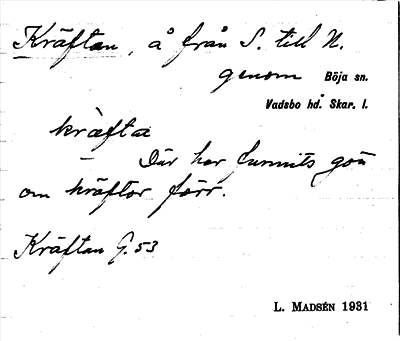 Kräftan, å från S. till N.
genom Böja sn.
Vadsbo hd. Skar. l.
kràfta
Där har funnits gott
om kräftor förr.
Kräftan G. 53
L. MADSÉN 1931